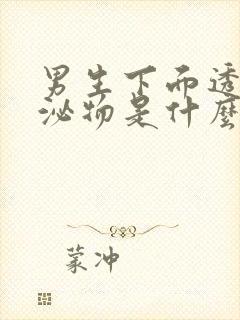 男生下面透
泌物是什麽
蒙冲